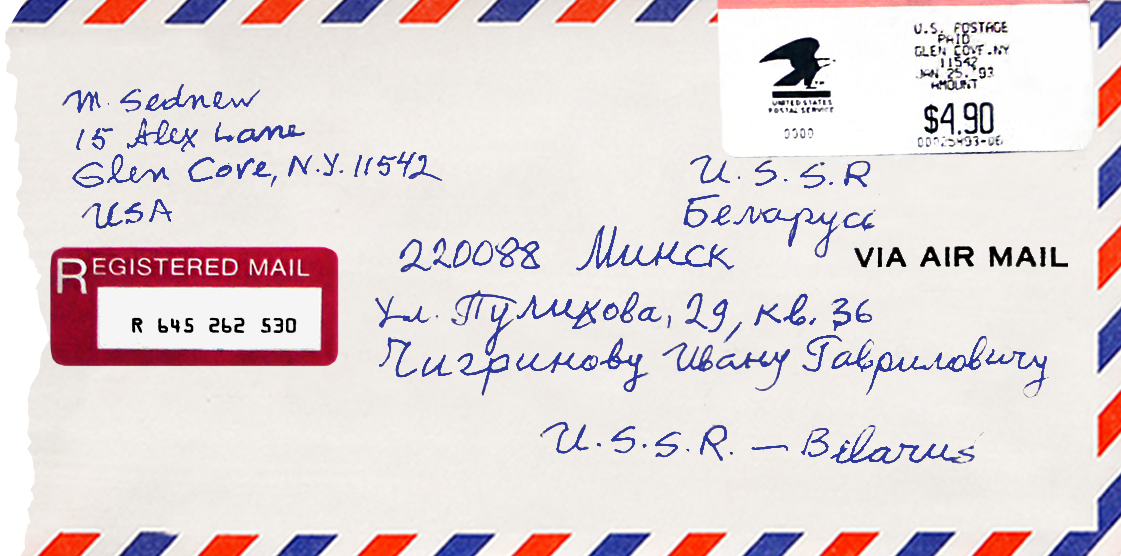 U.S. POSTAGE
PAID
GLEN COVE, NY
11542
JAN 25, '93
AMOUNT
$4.90
UNITED STATES
POSTAL SERVICE
0000
M. Sednew
15 Alex Lane
Glen Cove, N.Y. 11542
USA
U.S.S.R
Беларусь
220088 Минск
VIA AIR MAIL
Ул. Пулихова, 29, кв. 36
Чигринову Ивану Гавриловичу
U.S.S.R. — Bilarus
REGISTERED MAIL
R 645 262 530